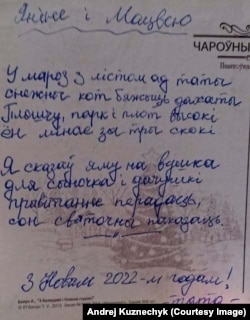 Яніне і Мацвею
ЧАРОЎНЫ
У мароз з лістом ад таты
снежны кот бяжыць дахаты
Плошчу, парк і плот высокі
ён мінае за тры скокі
Я сказаў яму на вушка
для сыночка і дачушкі
прывітанне перадаць,
сон святочны паказаць.
З Новым 2022-м годам!
- тата -
Andrej Kuznechyk (Courtesy Image)